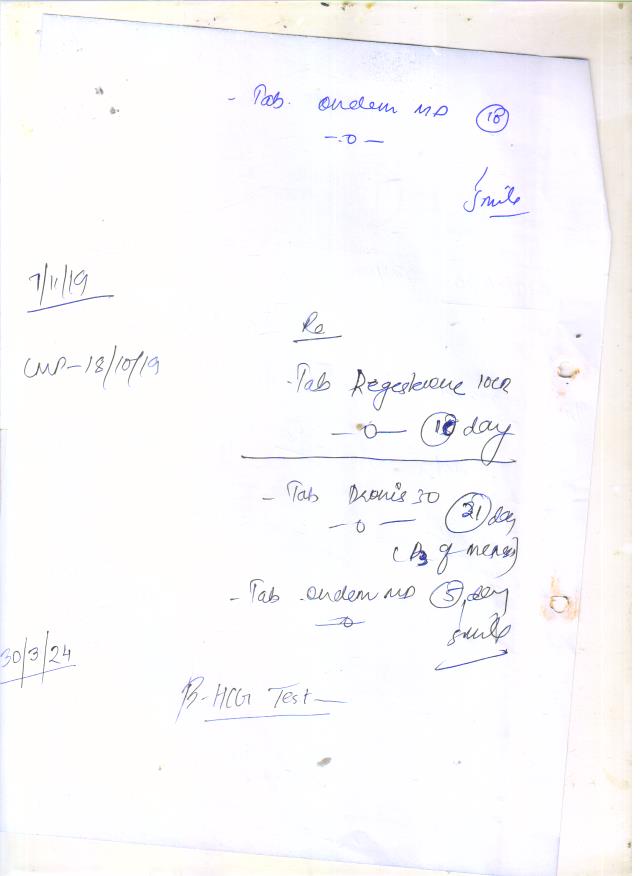 - Tab. ondem MD (10)
- 0 -
Smile
7/11/19
Rx
LMP - 18/10/19
- Tab Regesterone 10CR
- 0 - (10) day
- Tab Dronis 30 (21) day
- 0 -
(D3 of menses)
- Tab. ondem MD (5) day
- 0 -
Smile
30/3/24
β-HCG Test